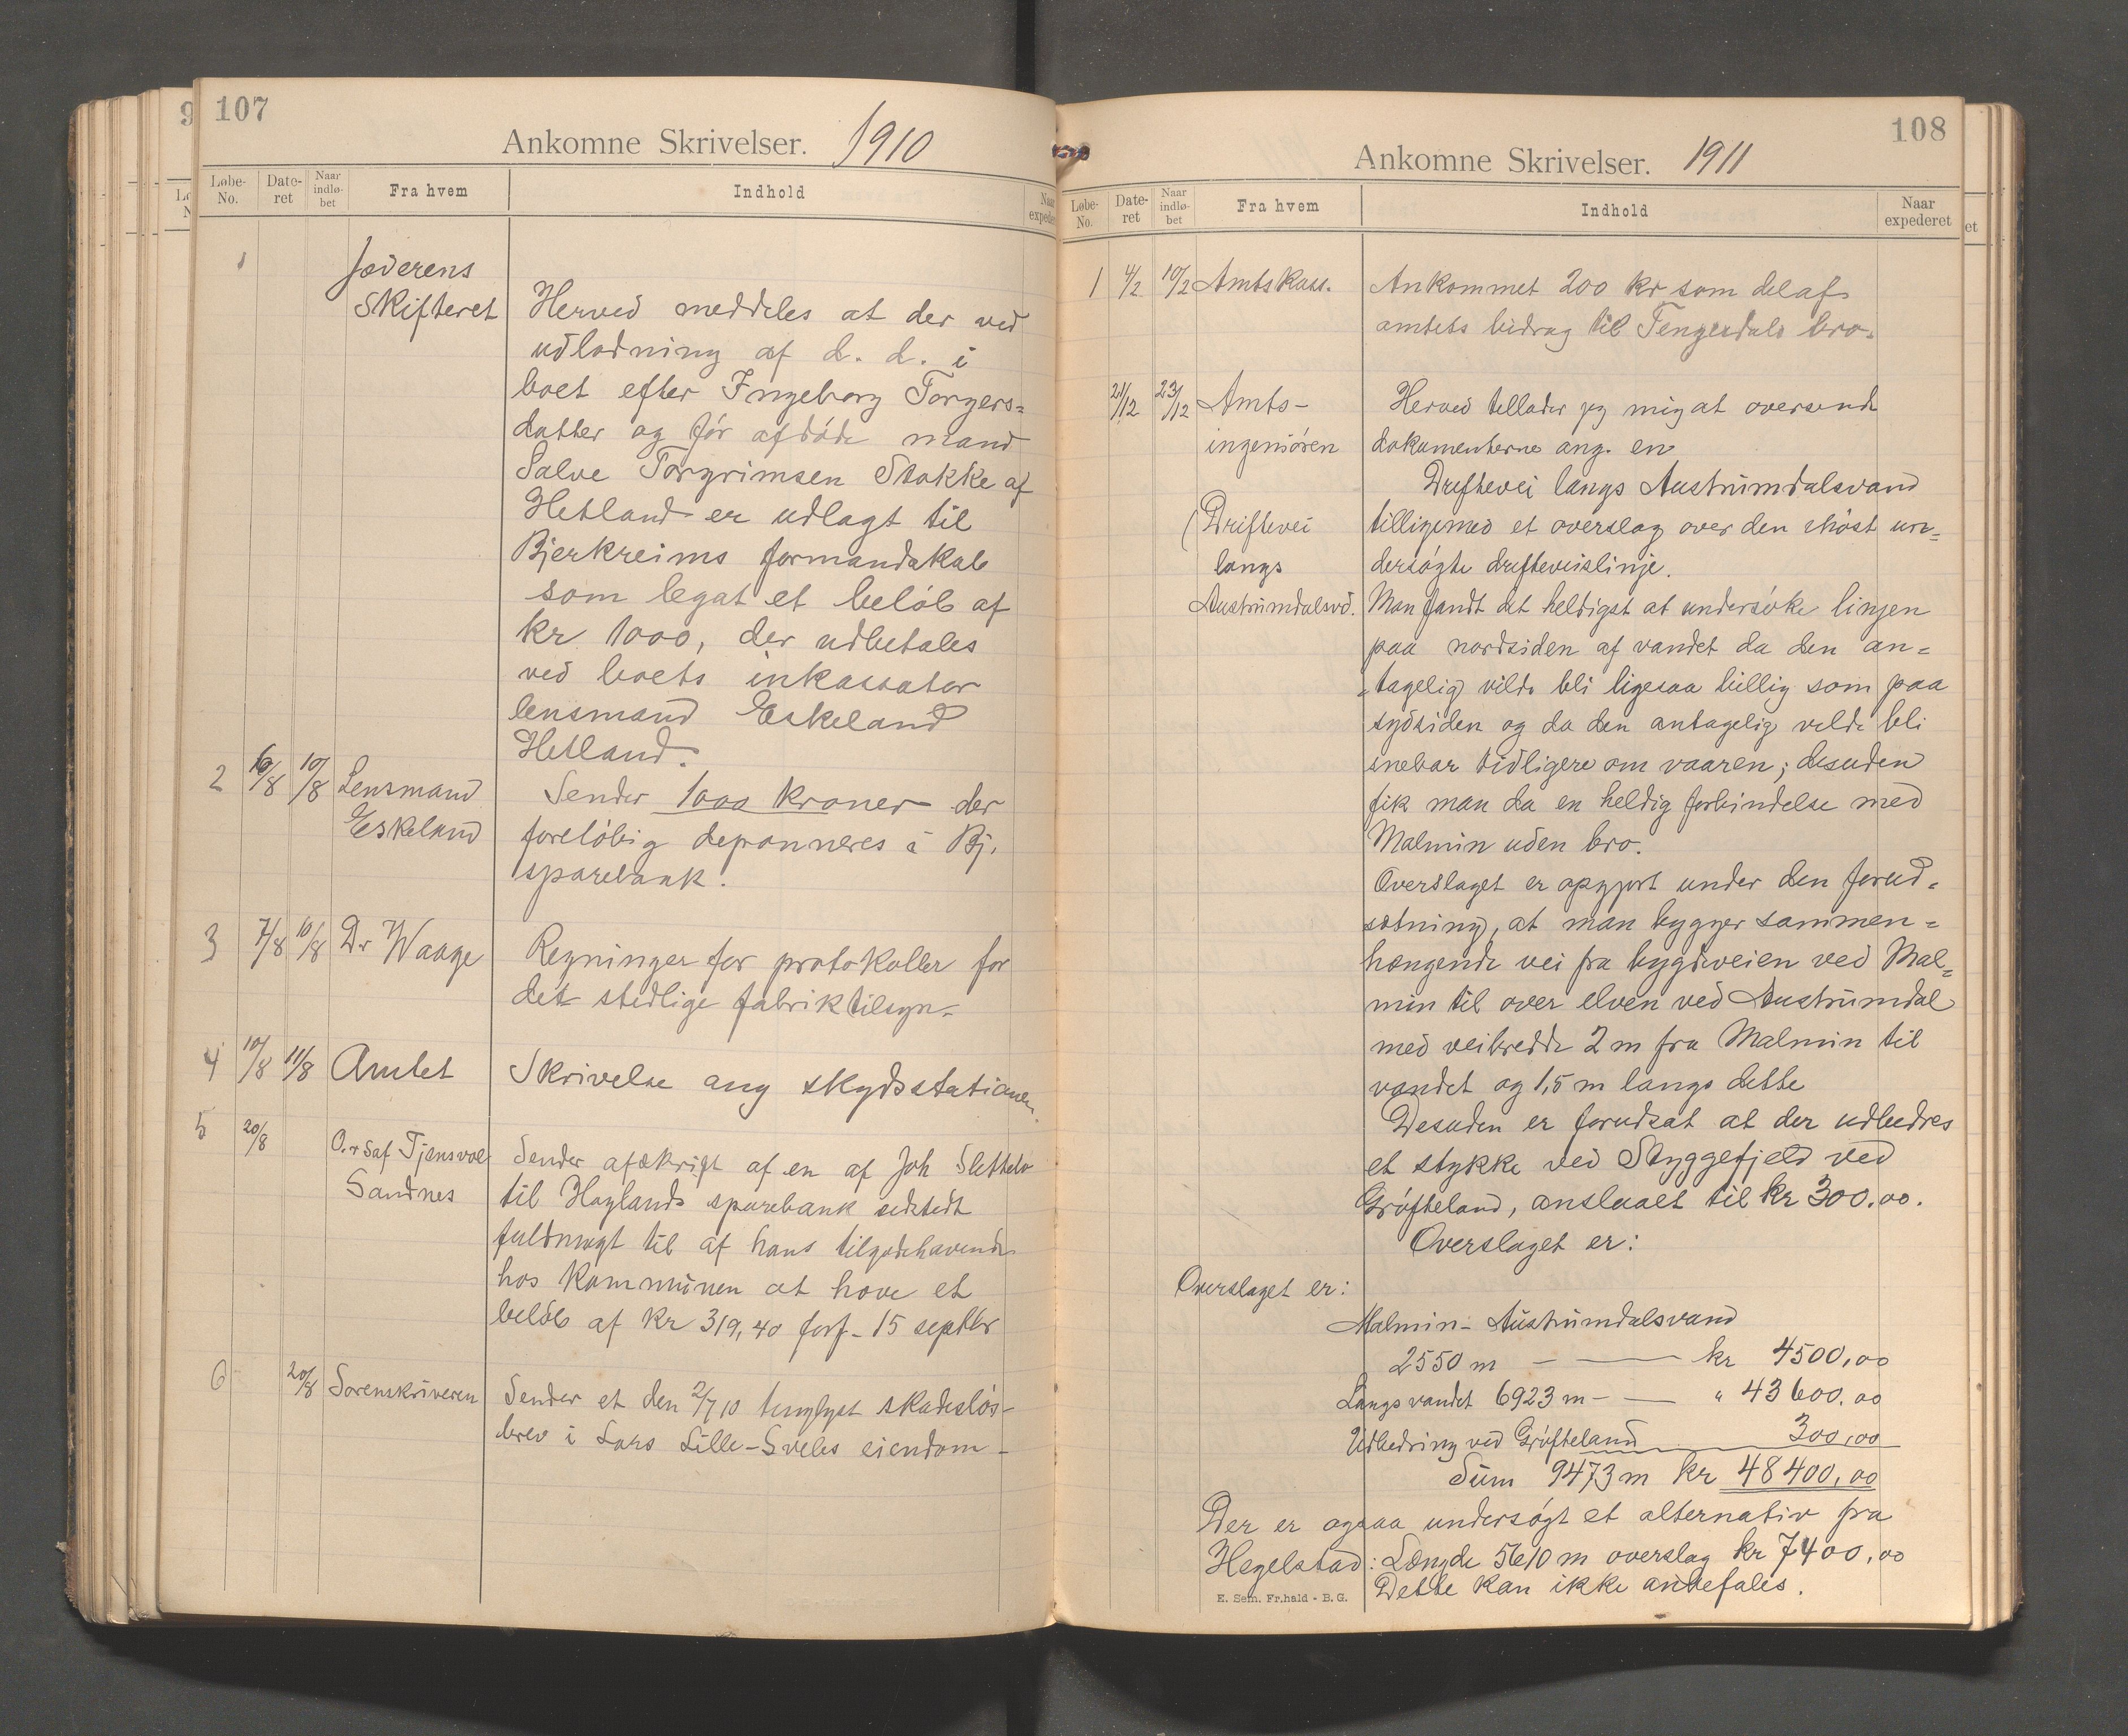 107
Ankomne Skrivelser. 1910
Løbe-No. Date-ret Naar indlø-bet Fra hvem Indhold
1 Jæderens
Skifteret Herved meddeles at der ved
udlodning af d. d. i
boet efter Ingeborg Torgers=
datter og før afdøde mand
Salve Torgrimsen Stokke af
Hetland er udlagt til
Bjerkreims formandskab
som legat et beløb af
kr 1000, der udbetales
ved boets inkassator
lensmand Eskeland
Hetland.
2 6/8 10/8 Lensmand Sender 1000 kroner der
Eskeland foreløbig deponneres i Bj.
sparebank.
3 7/8 10/8 Dr Waage Regninger for protokoller for
det stedlige fabriktilsyn-
4 10/8 11/8 Amtet Skrivelse ang skydsstationer.
5 20/8 O. Tjensvoll Sender afskrift af en af Joh Slettebø
Sandnes til Høylands sparebank udstedt
fuldmagt til af hans tilgodehavende
hos kommunen at hæve et
beløb af kr 319,40 forf- 15 septbr
6 20/8 Sorenskriveren Sender et den 2/7 10 tinglyst skadesløs-
brev i Lars Lille-Sveles eiendom-
108
Ankomne Skrivelser. 1911
Løbe-No. Date-ret Naar indlø-bet Fra hvem Indhold Naar expederet
1 4/2 10/2 Amtskass. Ankommet 200 kr som del af
amtets bidrag til Tengesdals bro.
21/12 23/12 Amts- Herved tillader jeg mig at oversende
ingeniøren dokumenterne ang. en
Driftevei langs Austrumdalsvand
(Driftevei tilligemed et overslag over den i høst un=
langs dersøgte drifteveislinje.
Austrumdalsvd. Man fandt det heldigst at undersøke linjen
paa nordsiden af vandet da den an=
tagelig vilde bli ligesaa billig som paa
sydsiden og da den antagelig vilde bli
snebar tidligere om vaaren; desuden
fik man da en heldig forbindelse med
Malmin uden bro.
Overslaget er opgjort under den forud=
sætning, at man bygger sammen=
hængende vei fra bygdeveien ved Mal=
min til over elven ved Austrumdal
med veibredde 2 m fra Malmin til
vandet og 1,5 m langs dette
Desuden er forudsat at der udbedres
et stykke ved Styggefjeld ved
Grøfteland, anslaaet til kr 300.00.
Overslaget er:
Overslaget er:
Malmin- Austrumdalsvand
2550 m — — kr 4500,00
Langs vandet 6923 m - — " 43600.00
Udbedring ved Grøfteland 300,00
Sum 9473 m kr 48400,00
Der er ogsaa undersøgt et alternativ fra
Hegelstad: Længde 5610 m overslag kr 7400,00
Dette kan ikke anbefales.
E. Sem. Fr.hald - B. G.